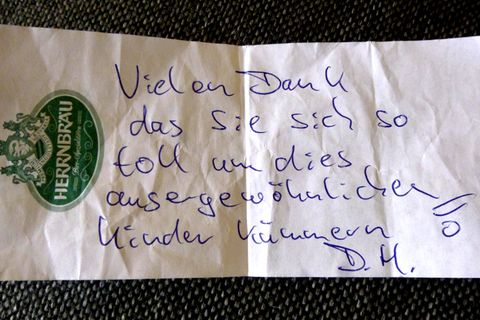 HERRNBRÄU
Vielen Dank
das Sie sich so
toll um dies
ausergewöhnlichen
Kinder kümmern!!
D.M.